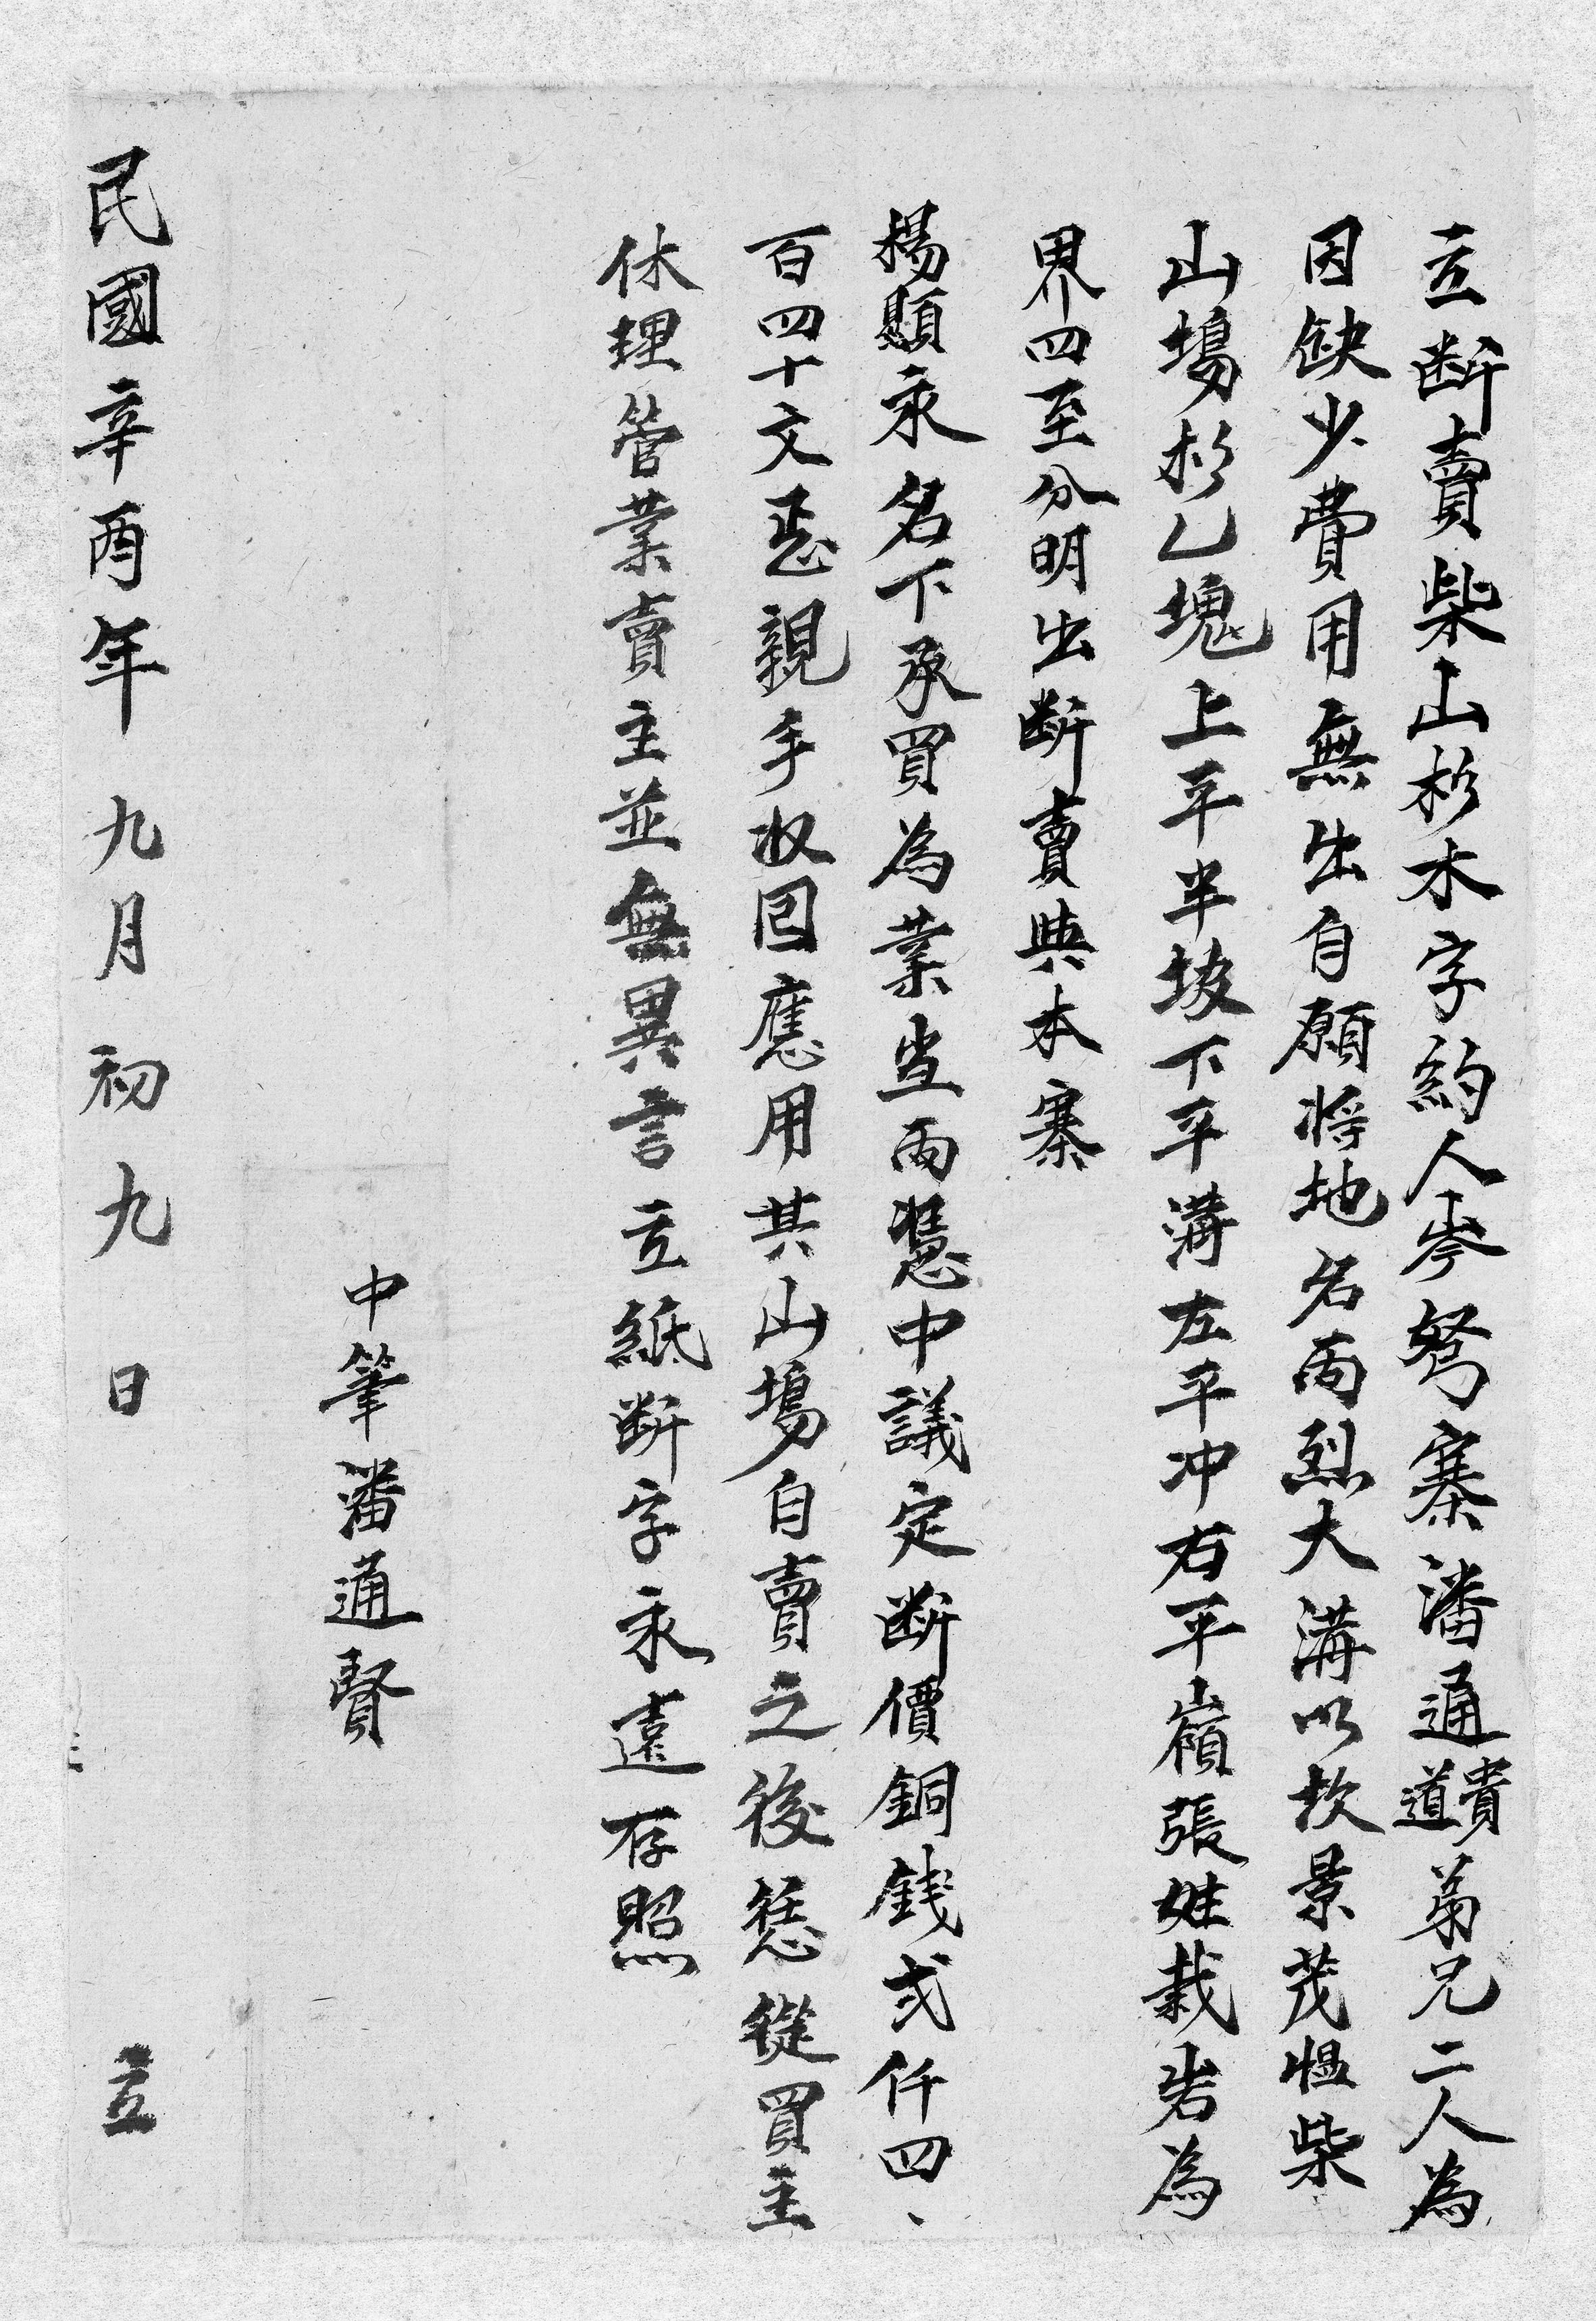 立断賣柴山杉木字約人岑努寨潘通貴道弟兄二人為
因缺少費用無出自願将地名両烈大溝以坎景茂榅柴
山塲杉乙塊上平半坡下平溝左平冲右平嶺張姓栽岩為
界四至分明出断賣典本寨
楊顯永名下承買為業当両慿中議定断價銅錢弍仟四、
百四十文恁親手收回應用其山塲自賣之後恁從買主
休理管業賣主並無異言立紙断字永遠存照
中筆潘通賢
民國辛酉年九月初九日立